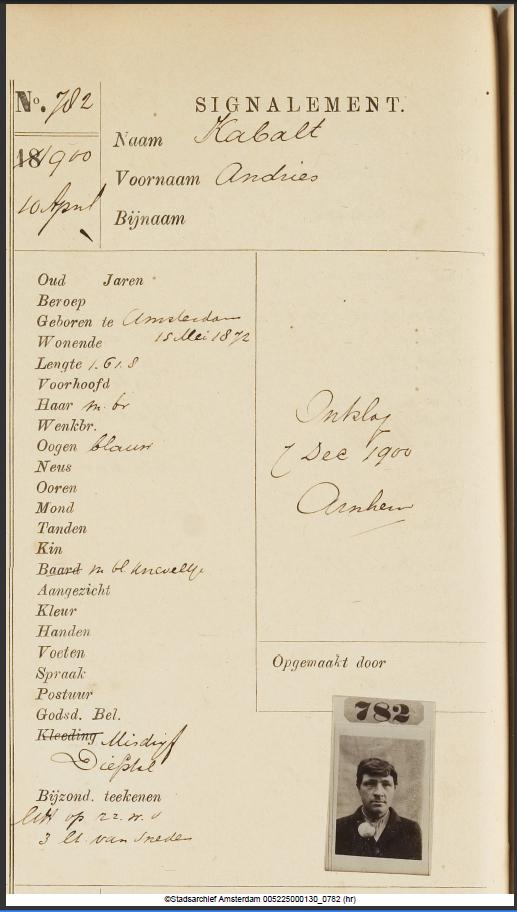 No. 782
SIGNALEMENT.
Naam Kabalt
18 1900
Voornaam Andries
10 April
Bijnaam
Oud Jaren
Beroep
Geboren te Amsterdam
Wonende 15 Mei 1872
Lengte 1.61.8
Voorhoofd
Haar m. br
Wenkbr.
Oogen blauw
Neus
Ooren
Mond
Tanden
Kin
Baard m bl kneveltje
Aangezicht
Kleur
Handen
Voeten
Spraak
Postuur
Godsd. Bel.
Kleeding Misdrijf
Diefstal
Bijzond. teekenen
litt op
3 lt. van
7 Dec 1900
Arnhem
Opgemaakt door
782
©Stadsarchief Amsterdam 005225000130_0782 (hr)